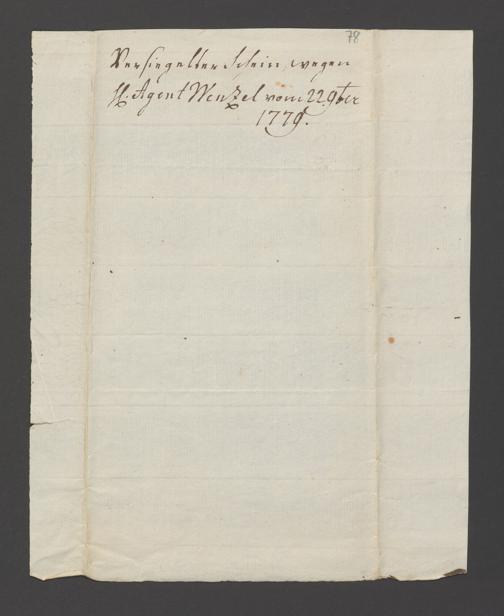 78
Versiegelter Schein wegen
H. Agent Wenzel vom 22 9ber
1779.